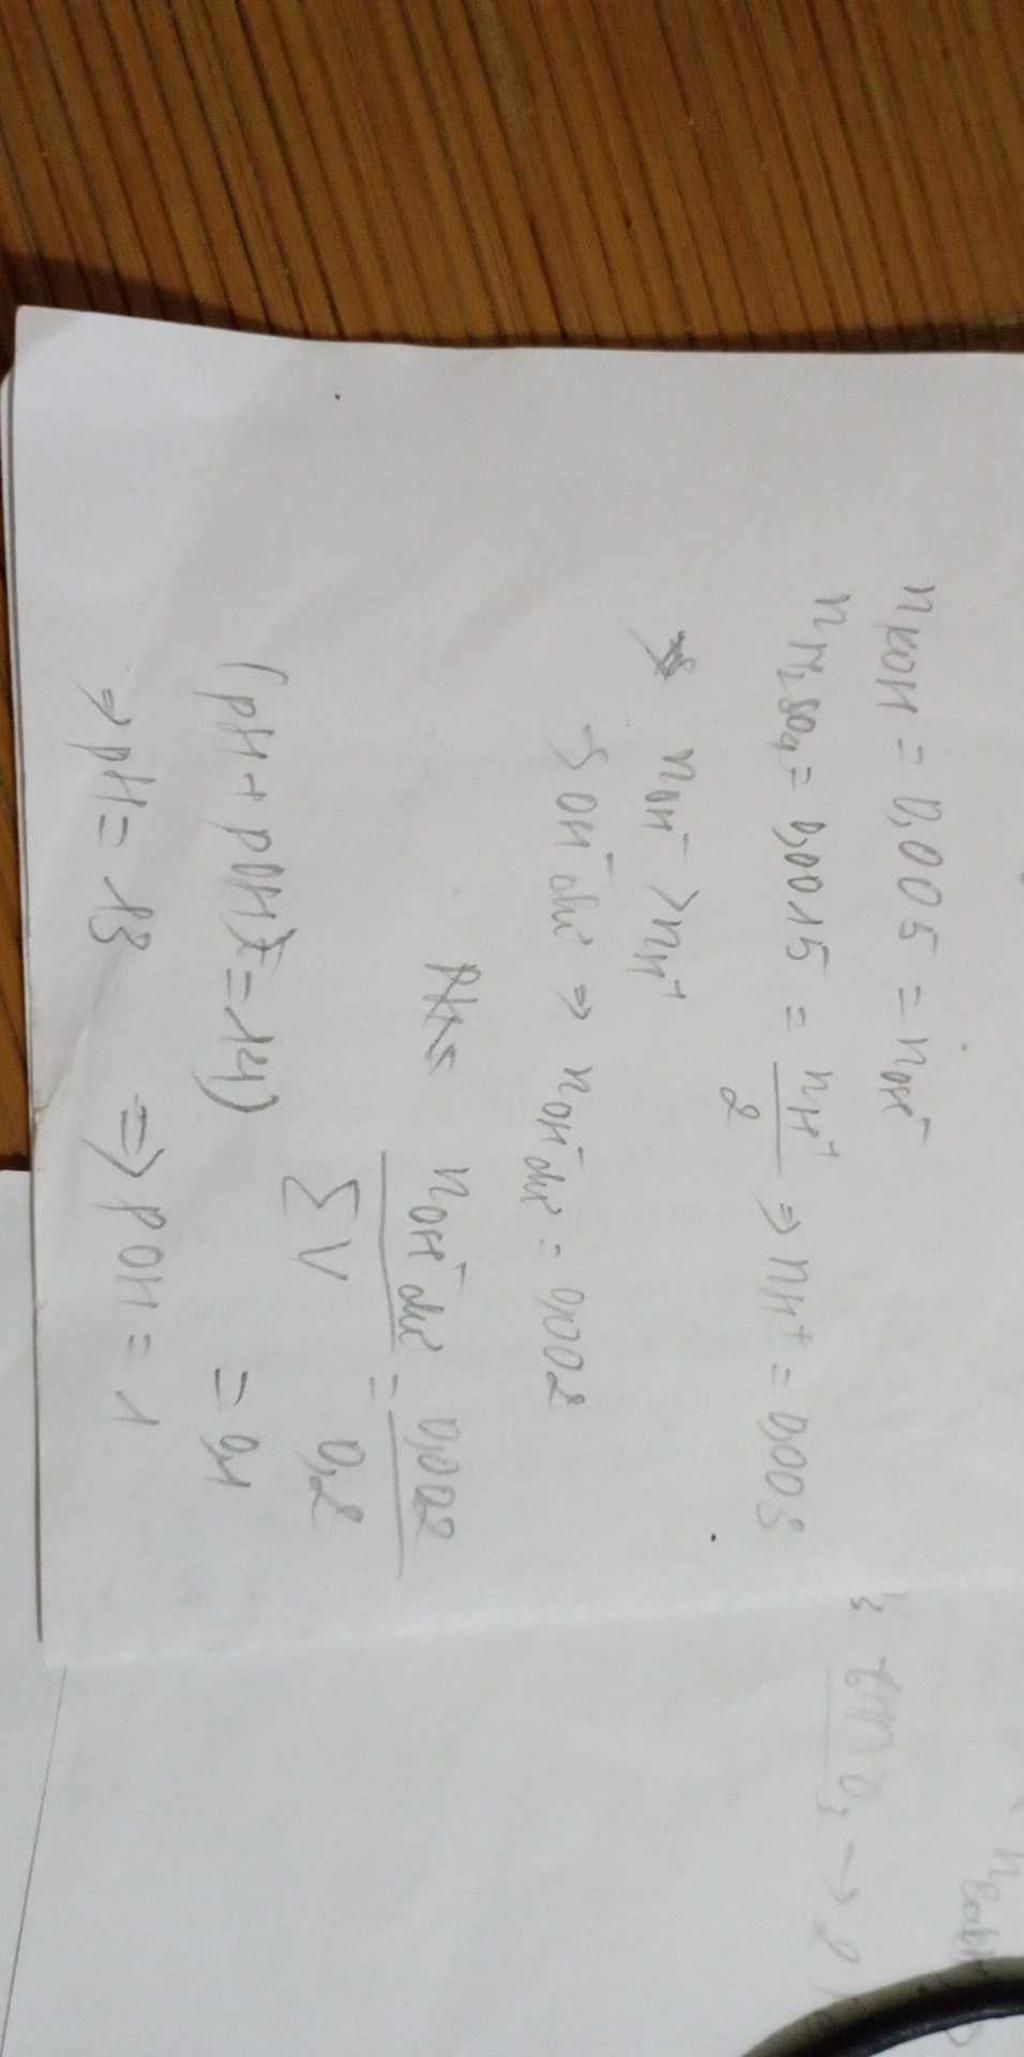 n_KOH = 0,005 = n_OH⁻
n_H₂SO₄ = 0,0015 = n_H⁺/2 ⇒ n_H⁺ = 0,003
n_OH⁻ > n_H⁺
→ OH⁻ dư ⇒ n_OH⁻ dư = 0,002
n_OH⁻ dư / ΣV = 0,002 / 0,2
(pH + pOH = 14) = 0,1
⇒ pH = 13 ⇒ pOH = 1